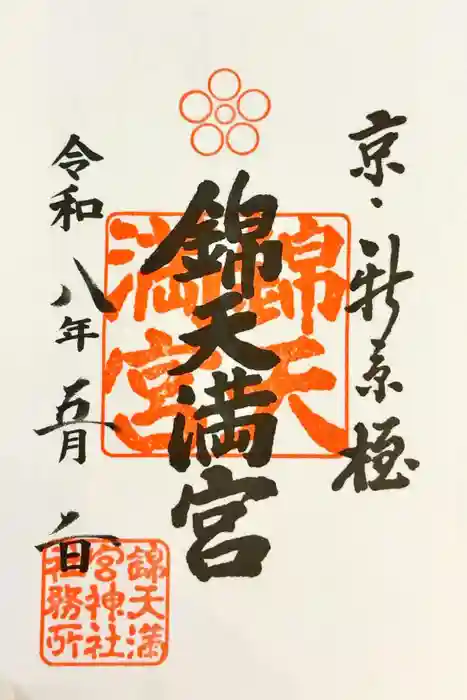 京・新京極
錦天満宮
錦天
満宮
令和八年五月二日
錦天満
宮神社
社務所